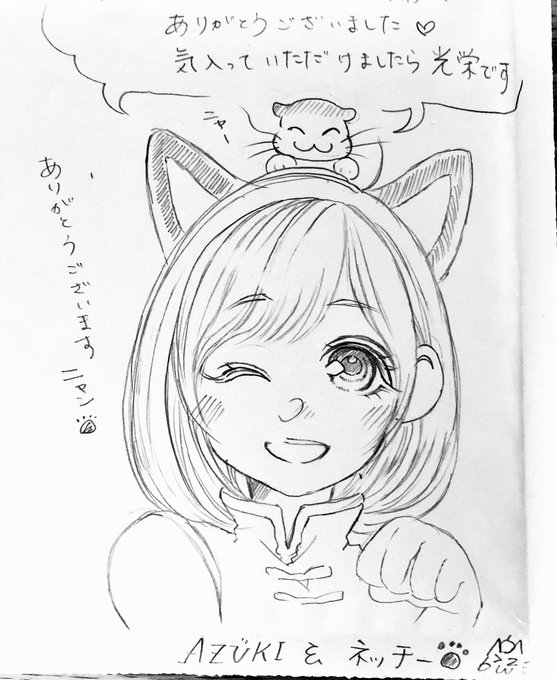 ありがとうございました♡
気入っていただけましたら光栄です
ニャー
ありがとうございます ニャン
AZÙKI & ネッチー